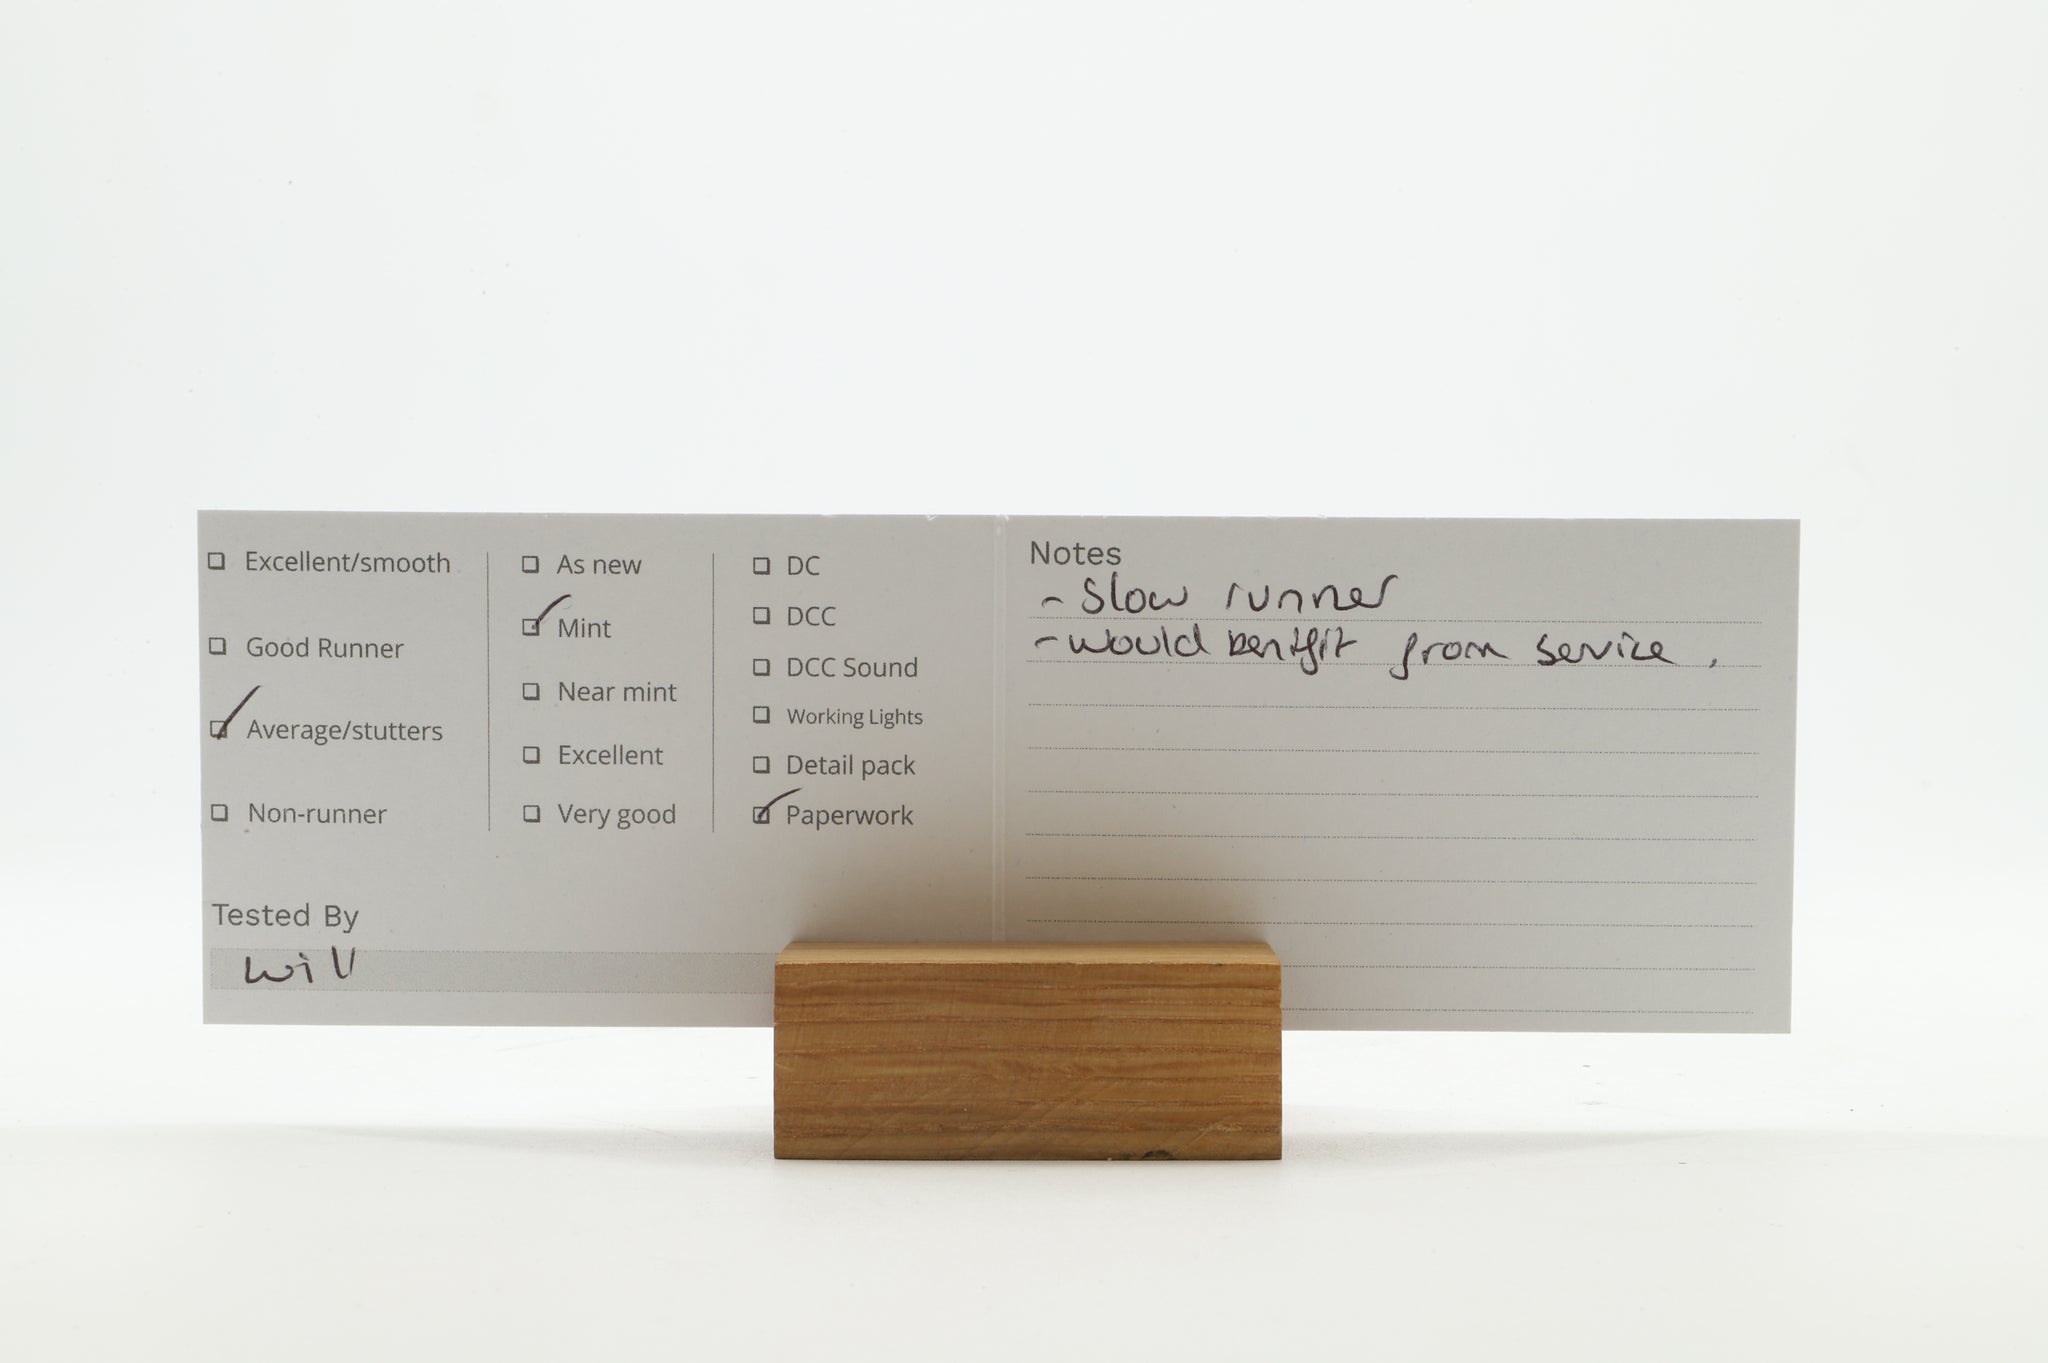 Excellent/smooth
Good Runner
Average/stutters
Non-runner
As new
Mint
Near mint
Excellent
Very good
DC
DCC
DCC Sound
Working Lights
Detail pack
Paperwork
Tested By
Will
Notes
- Slow runner
- would benifit from service.